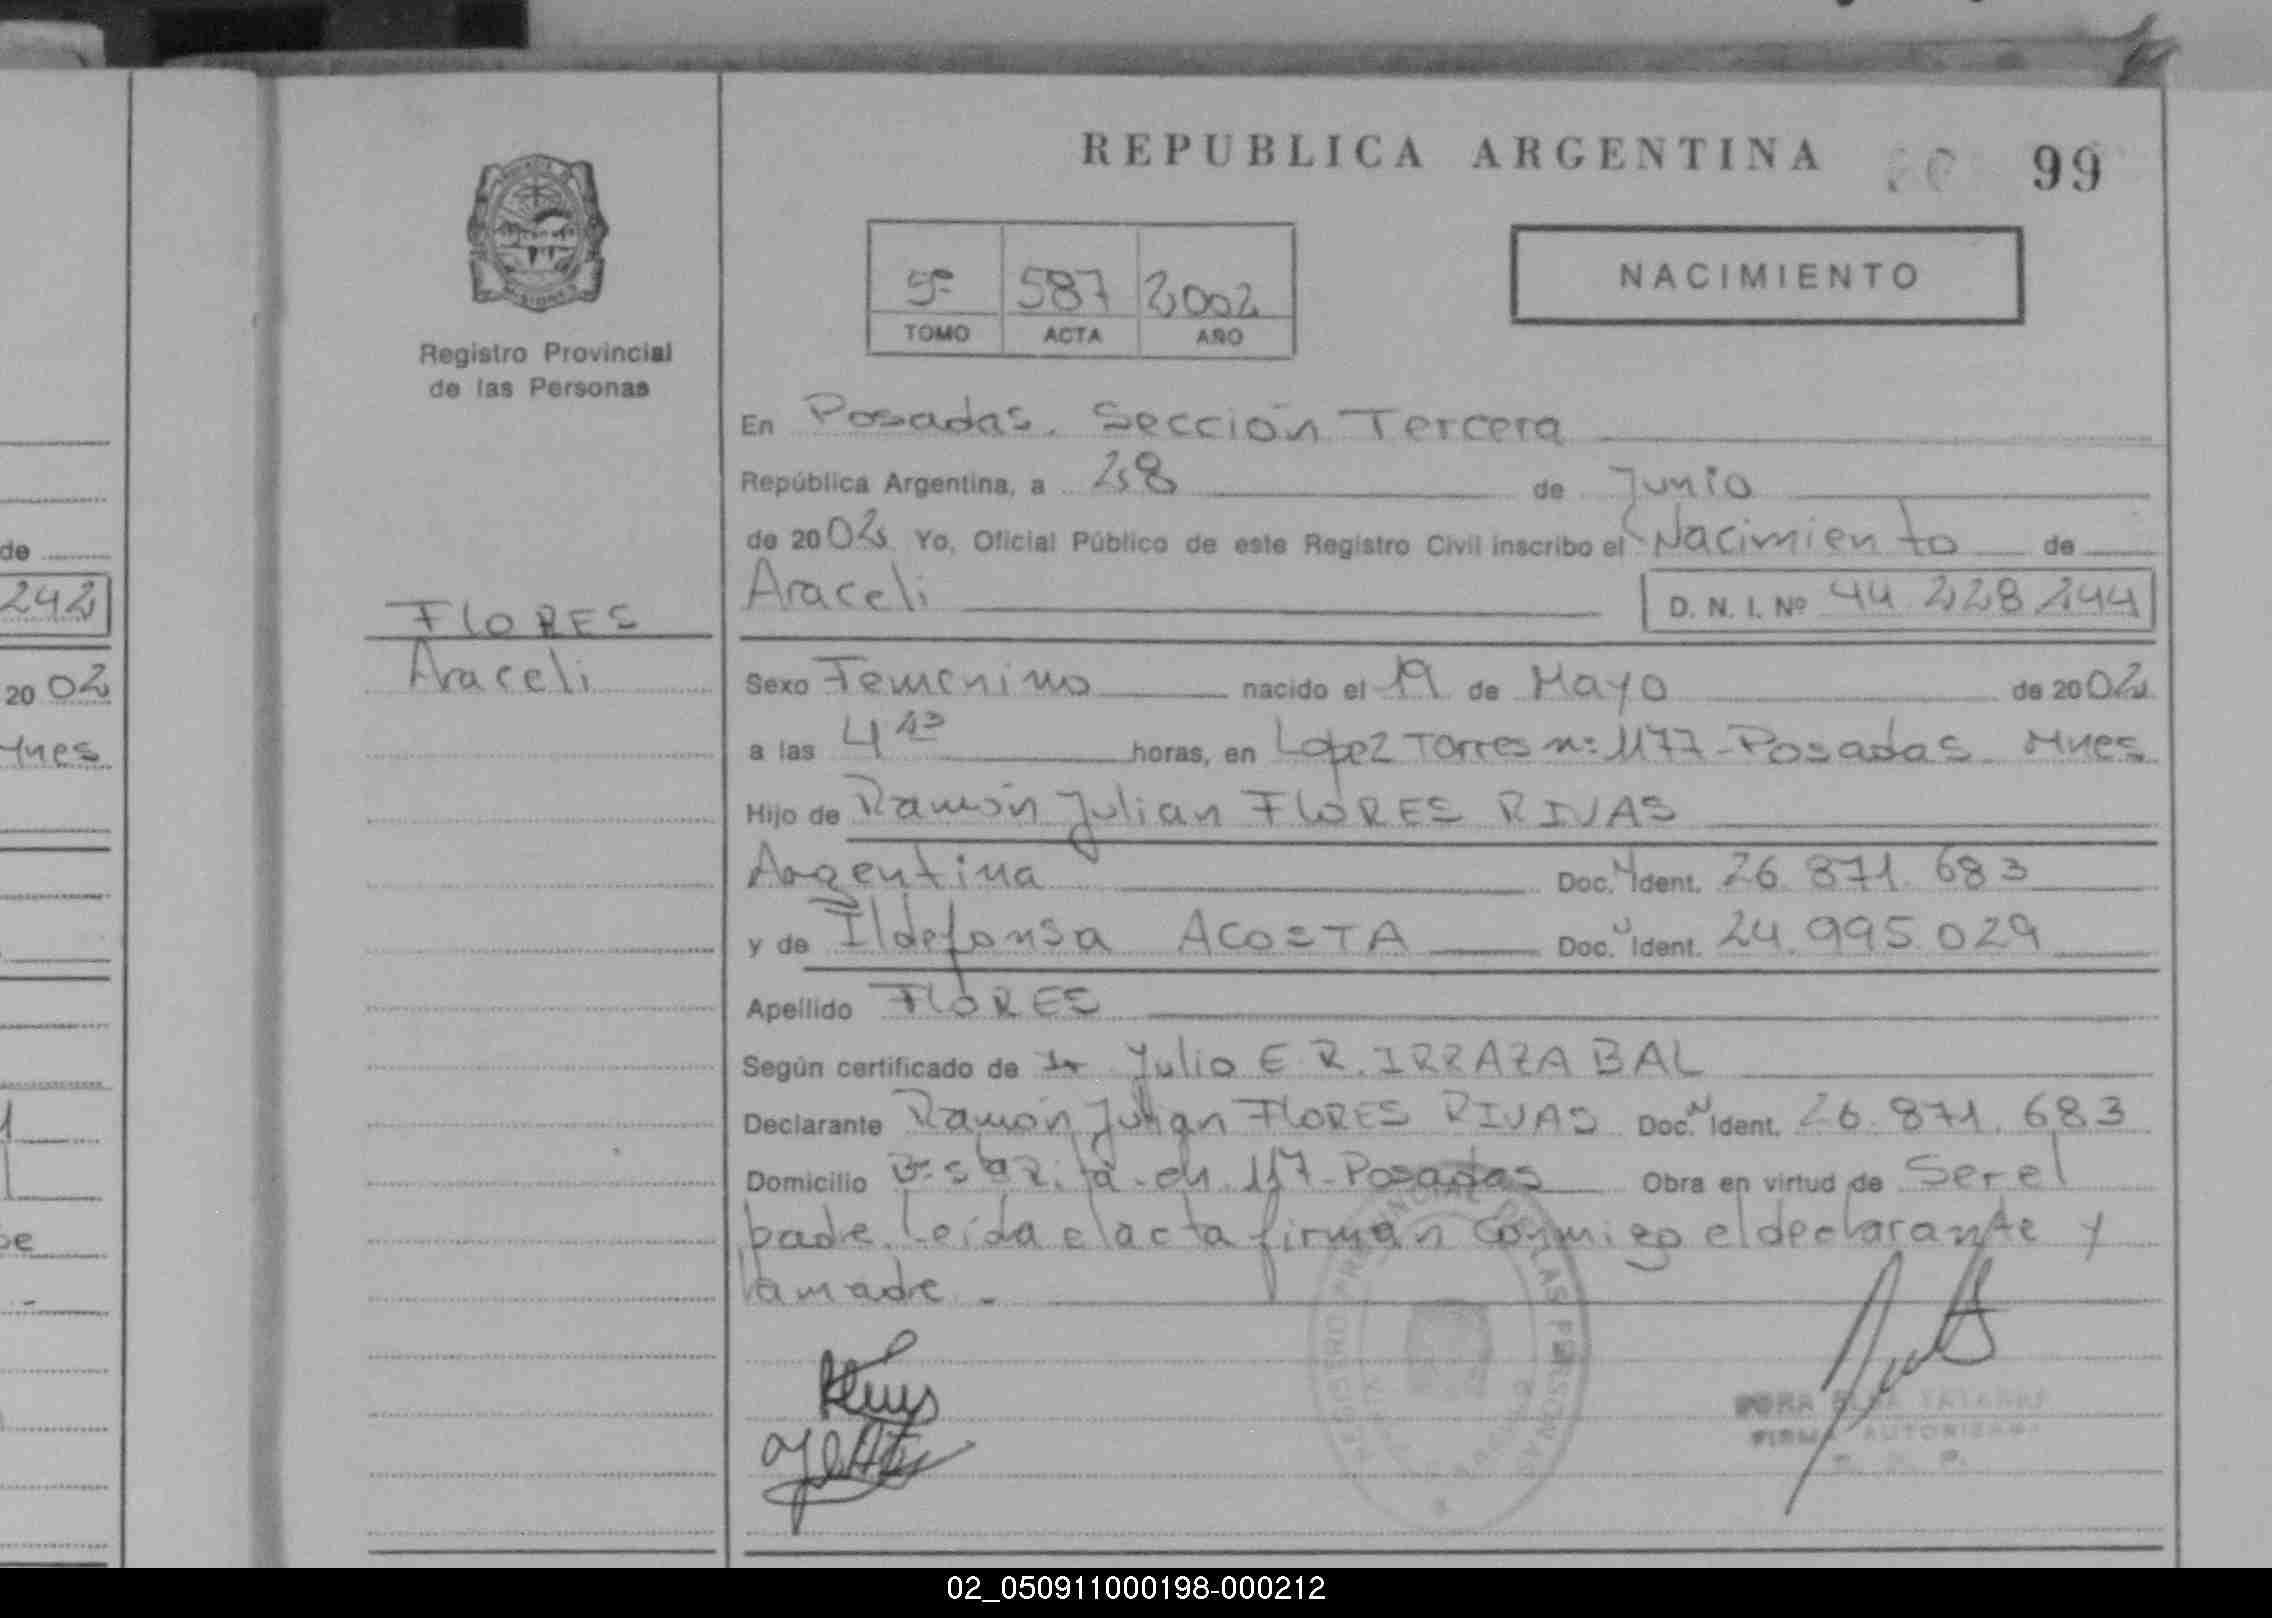 REPUBLICA ARGENTINA 99
5º 587 2002
TOMO ACTA AÑO
NACIMIENTO
Registro Provincial
de las Personas
En Posadas. Sección Tercera
República Argentina, a 28 de Junio
de 2002 Yo, Oficial Público de este Registro Civil inscribo el Nacimiento de
Araceli D. N. I. Nº 44 228 244
FLORES
Araceli
Sexo Femenino nacido el 19 de Mayo de 2002
a las 4 horas, en Lopez Torres nº 1177 - Posadas. Mnes
Hijo de Ramón Julian FLORES RIVAS
Argentina Doc. N Ident. 26. 871. 683
y de Ildefonsa ACOSTA Doc. N Ident. 24. 995. 029
Apellido FLORES
Según certificado de Julio E. R. IRRAZABAL
Declarante Ramón Julian FLORES RIVAS Doc. N Ident. 26. 871. 683
Domicilio 117 - Posadas Obra en virtud de Ser el
padre. Leída el acta firman conmigo el declarante y
la madre -
REGISTRO PROVINCIAL DE LAS PERSONAS
FIRMA AUTORIZADA
de
242
20 02
Mnes
02_050911000198-000212